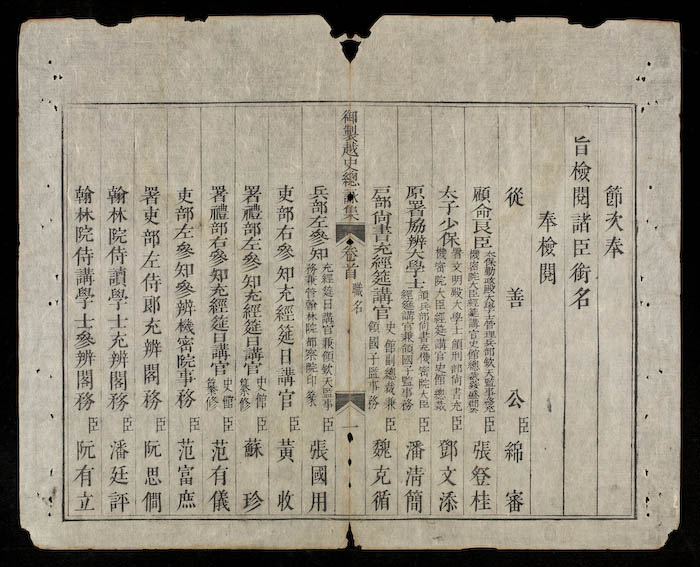 節次奉
旨檢閱諸臣銜名
奉檢閱
從善公臣綿審
顧命良臣
臣張登桂
太子少保署文明殿大學士領刑部尚書充機密院大臣經筵講官史館總裁臣鄧文添
原署協辨大學士領兵部尚書充機密院大臣經筵講官兼領國子監事務臣潘清簡
戸部尚書充經筵講官史館副總裁兼領國子監事務臣魏克循
御製越史總詠集
卷首
職名
一
兵部左參知充經筵日講官兼領欽天監事務兼管翰林院都察院印篆臣張國用
吏部右參知充經筵日講官臣黃收
署禮部左參知充經筵日講官史館纂修臣蘇珍
署禮部右參知充經筵日講官史館纂修臣范有儀
吏部左參知參辨機密院事務臣范富庶
署吏部左侍郎充辨閣務臣阮思僩
翰林院侍讀學士充辨閣務臣潘廷評
翰林院侍講學士參辨閣務臣阮有立